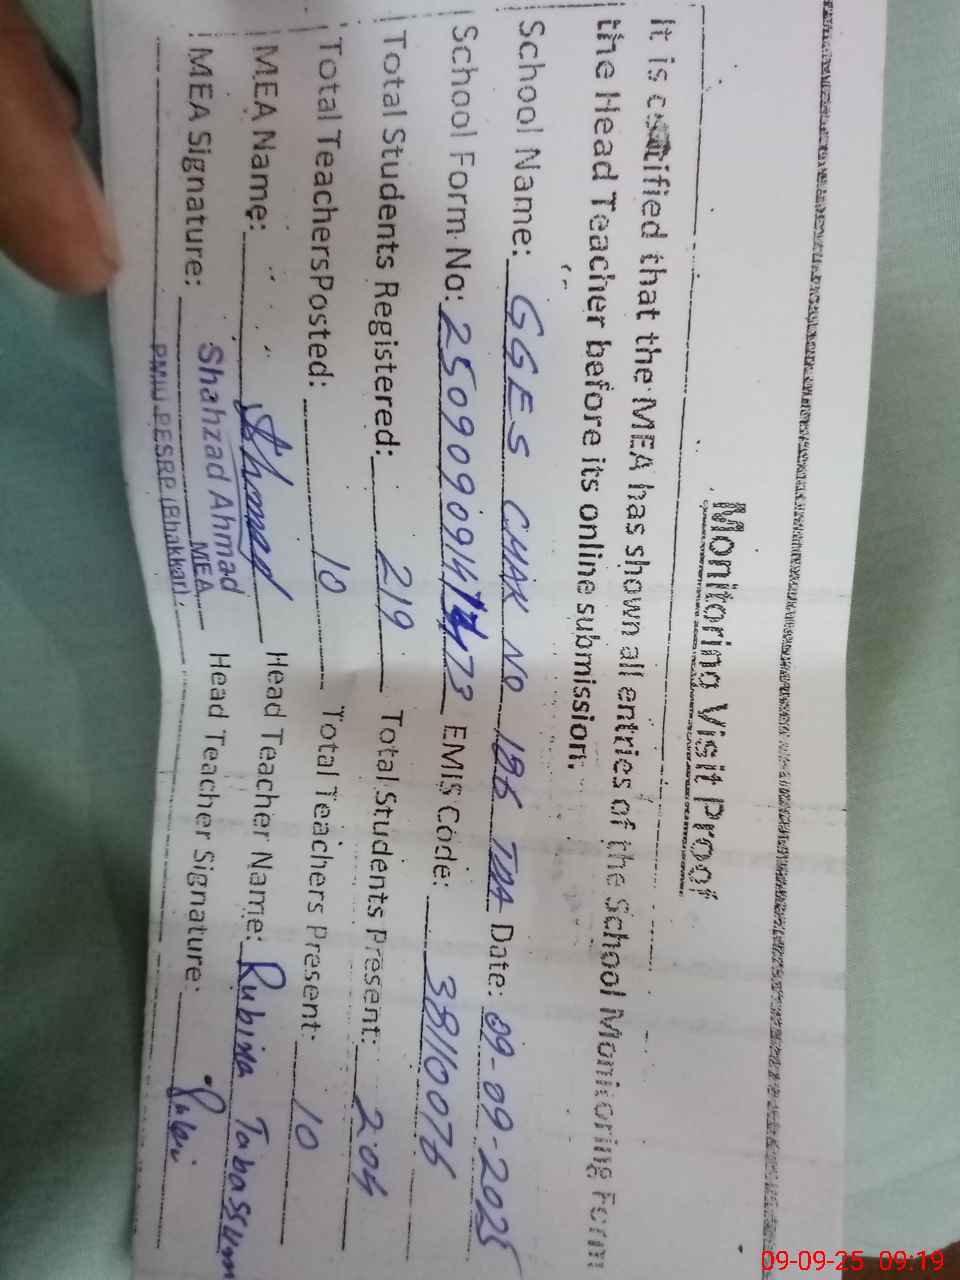 Monitoring Visit Proof
It is certified that the MEA has shown all entries of the School Monitoring Form
the Head Teacher before its online submission.
School Name: GGES CHAK NO 196 TDA Date: 09-09-2025
School Form No: EMIS Code: 38110076
Total Students Registered: 219 Total Students Present: 204
Total TeachersPosted: 10 Total Teachers Present: 10
MEA Name: Ahmad Head Teacher Name: Rubina Tabassum
MEA Signature: Shahzad Ahmad Head Teacher Signature:
MEA
PMIU PESRP (Bhakkar)
09-09-25 09:19